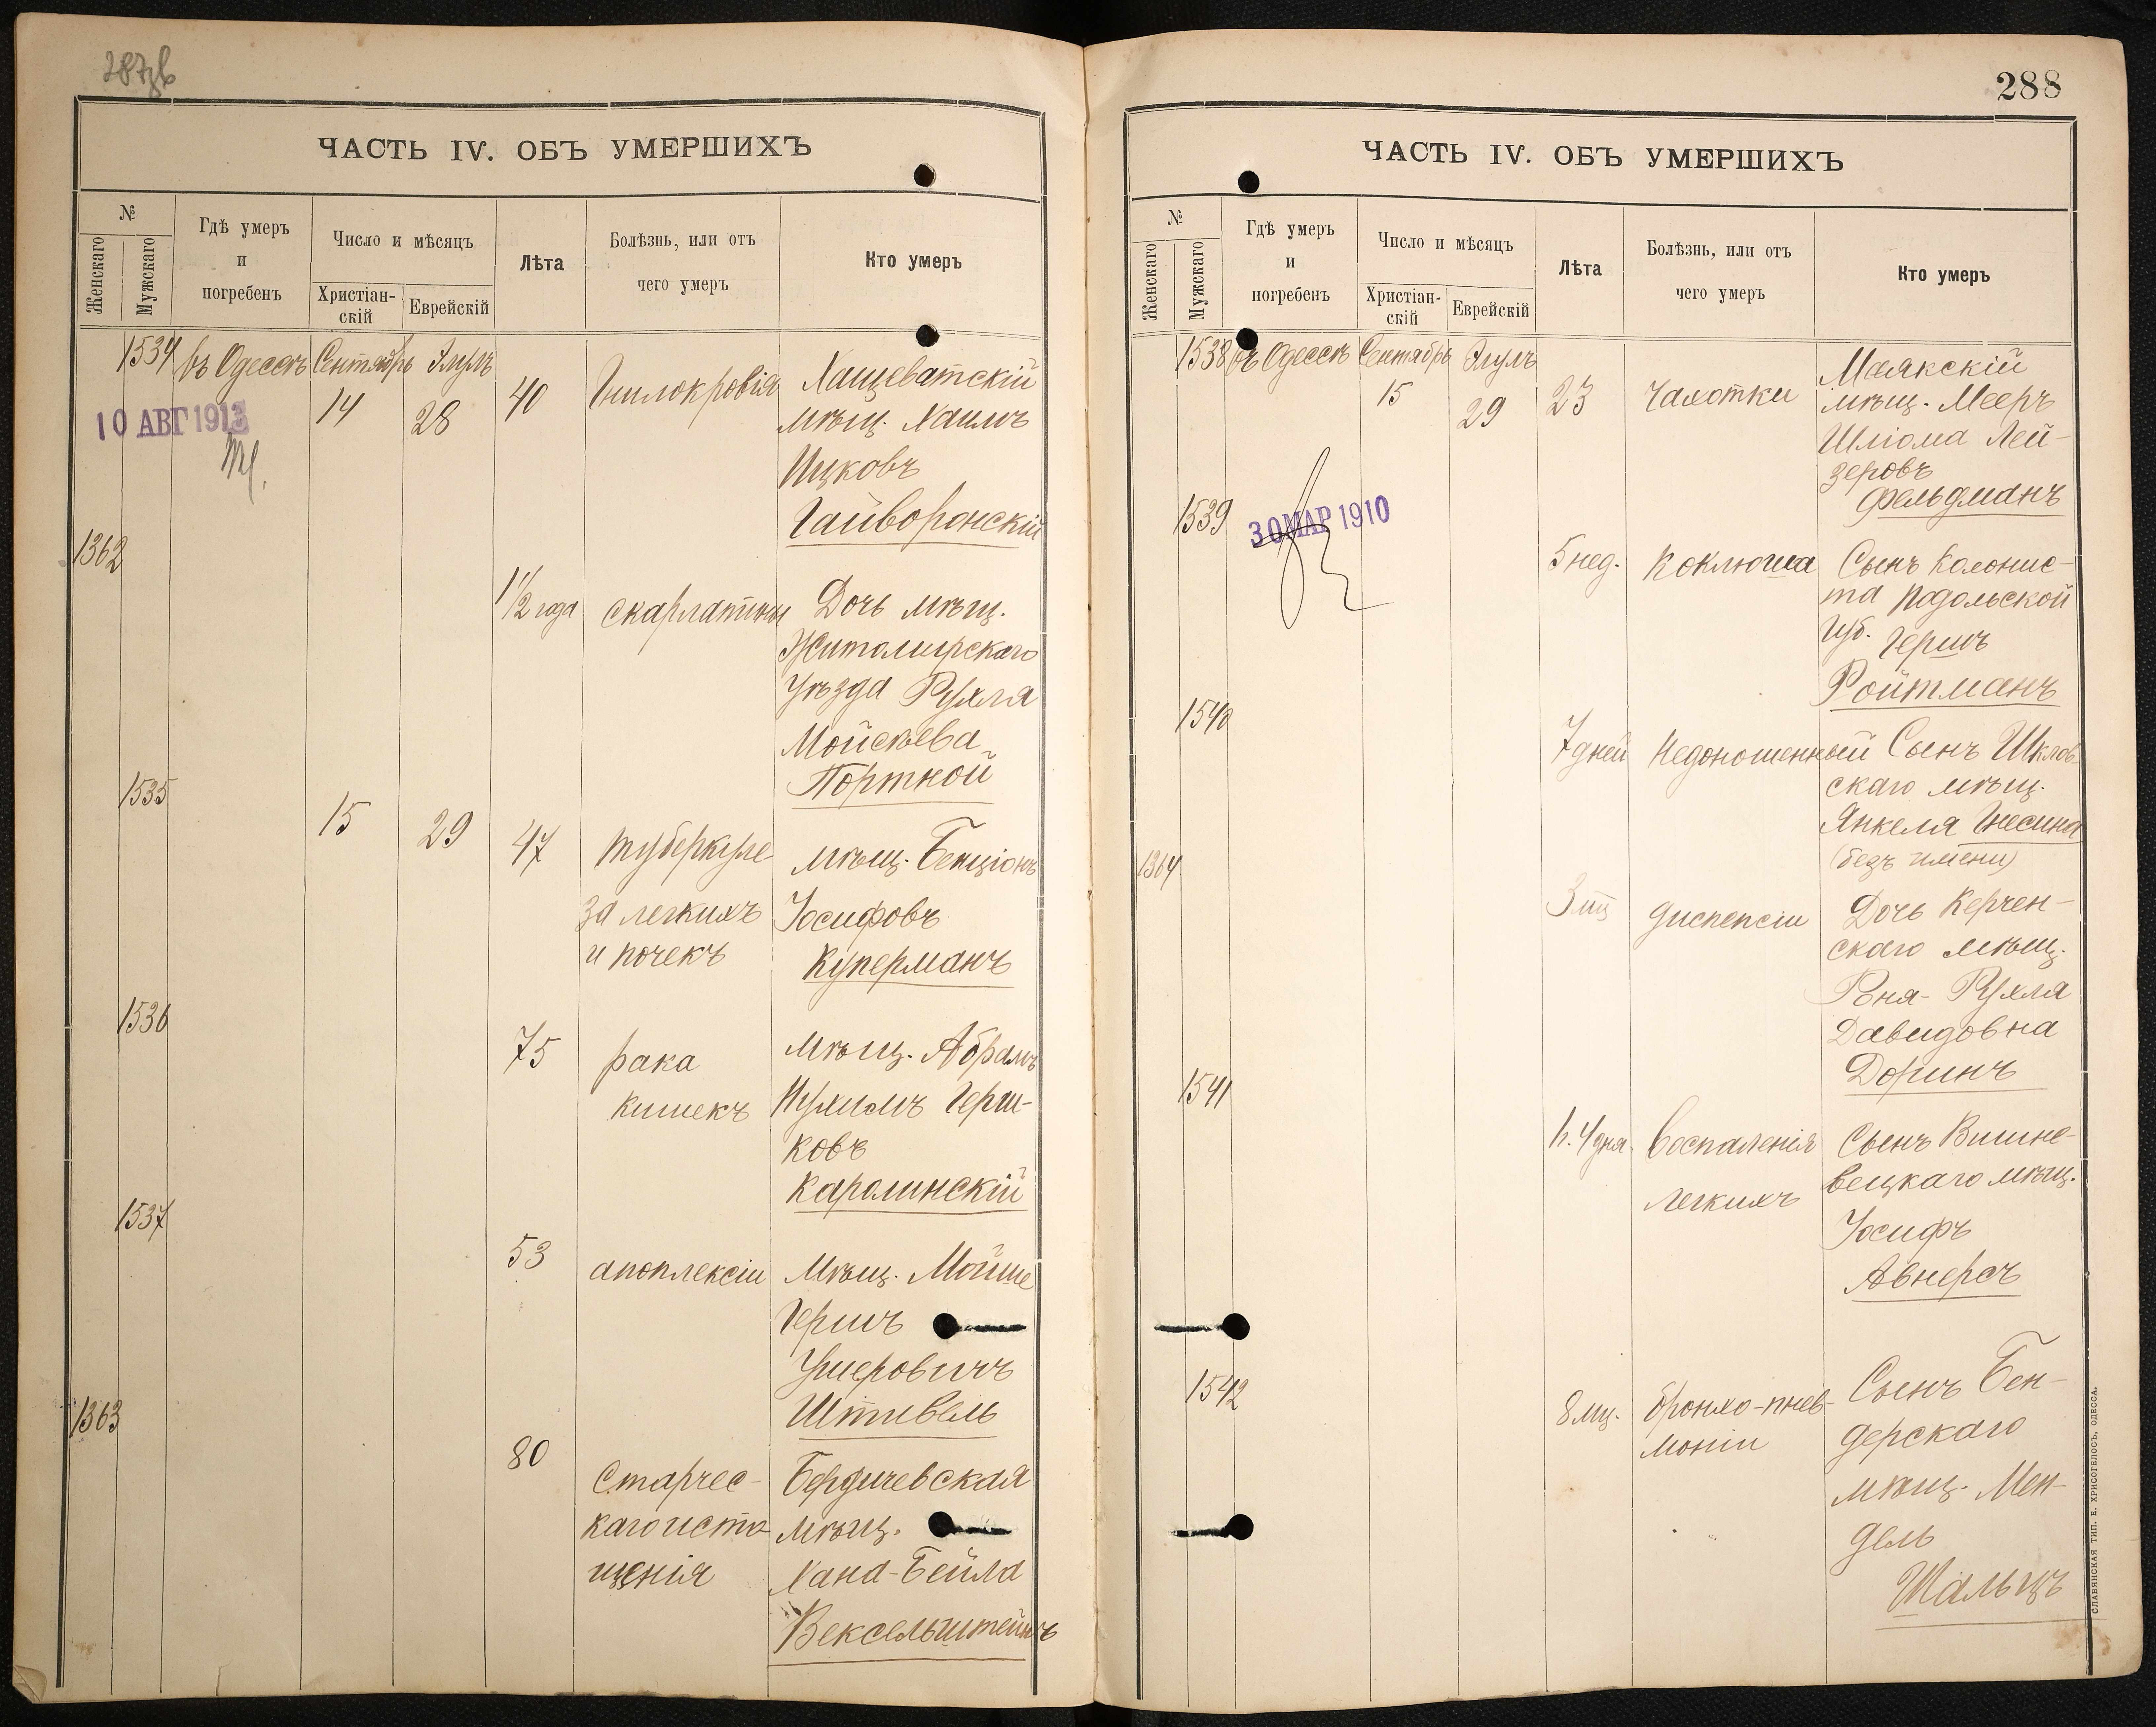 287об
ЧАСТЬ IV. ОБЪ УМЕРШИХЪ
№
Женскаго
Мужскаго
Гдѣ умеръ
и
погребенъ
Число и мѣсяцъ
Христіан-
скій
Еврейскій
Лѣта
Болѣзнь, или отъ
чего умеръ
Кто умеръ
1534 въ Одессѣ Сентябрь Элулъ
14 28 40 Гнилокровія Хащеватскій
мѣщ. Хаимъ
Ицковъ
Гайворонскій
10 АВГ 1913
1362
1 1/2 года скарлатины Дочь мѣщ.
Житомирскаго
уѣзда Рухля
Мойсѣева
Портной
1535
15 29 47 туберкуле-
за легкихъ
и почекъ
мѣщ. Бенціонъ
Іосифовъ
Куперманъ
1536
75 рака
кишекъ
мѣщ. Абрамъ
Нухимъ Герш-
ковъ
Каролинскій
1537
53 апоплексіи Мѣщ. Мойше
Гершъ
Ушеровичъ
Штивель
1363
80 Старчес-
каго исто-
щенія
Бердичевская
мѣщ.
Хана-Бейла
Вексельштейнъ
288
ЧАСТЬ IV. ОБЪ УМЕРШИХЪ
№
Женскаго
Мужскаго
Гдѣ умеръ
и
погребенъ
Число и мѣсяцъ
Христіан-
скій
Еврейскій
Лѣта
Болѣзнь, или отъ
чего умеръ
Кто умеръ
1538 въ Одессѣ Сентябрь Элулъ
15 29 23 Чахотки Маякскій
мѣщ. Мееръ
Шліома Лей-
зеровъ
Фельдманъ
1539
30 МАР 1910
5 нед. Коклюша Сынъ колонис-
та Подольской
Губ. Гершъ
Ройтманъ
1540
7 дней Недоношенный Сынъ Шклов-
скаго мѣщ.
Янкеля Гнесина
(безъ имени)
1364
3 мц диспепсіи Дочь Керчен-
скаго мѣщ.
Рухля
Давидовна
Доринъ
1541
4 дня. Воспаленія
легкихъ
Сынъ Вишне-
вецкаго мѣщ.
Іосифъ
Авнерсъ
1542
8 мц. бронхо-пнев-
моніи
Сынъ Бен-
дерскаго
мѣщ. Мен-
дель
Шальцъ
СЛАВЯНСКАЯ ТИП. Е. ХРИСОГЕЛОСЪ, ОДЕССА.